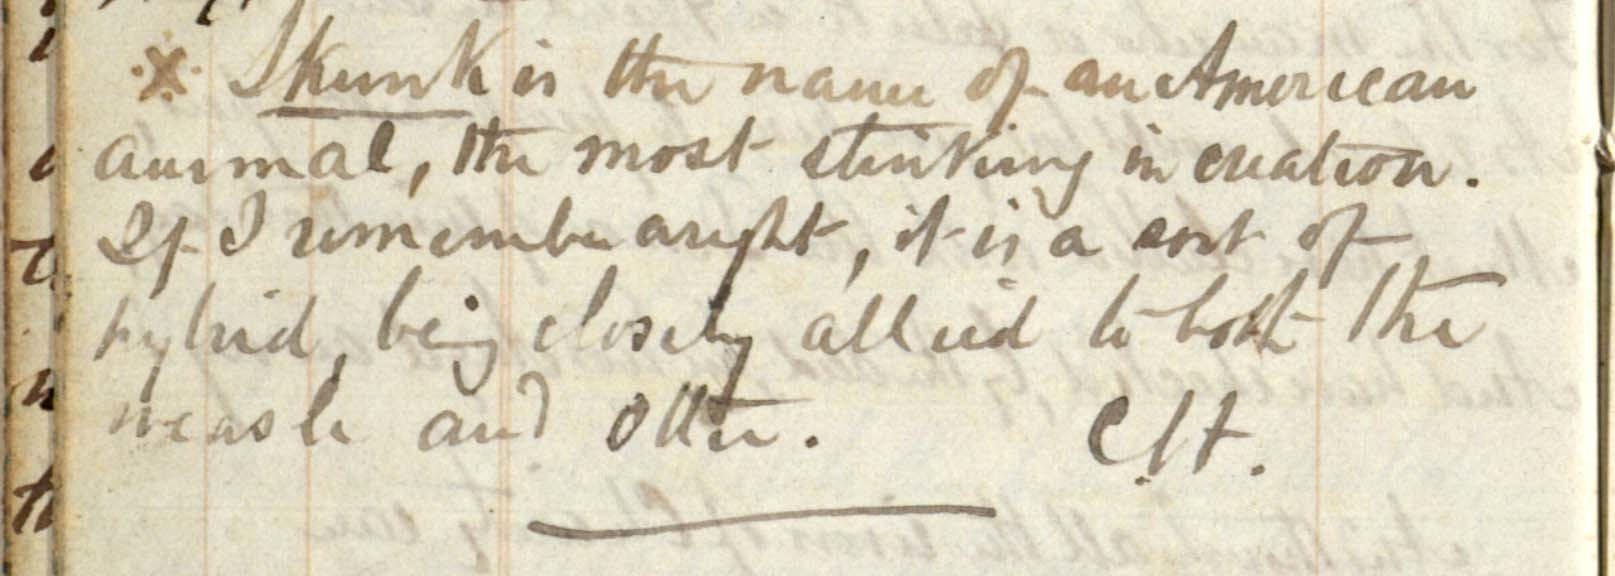 ※ Skunk is the name of an American
animal, the most stinking in creation.
If I remember aright, it is a sort of
hybrid, being closely allied to both the
weasle and otter. C.H.